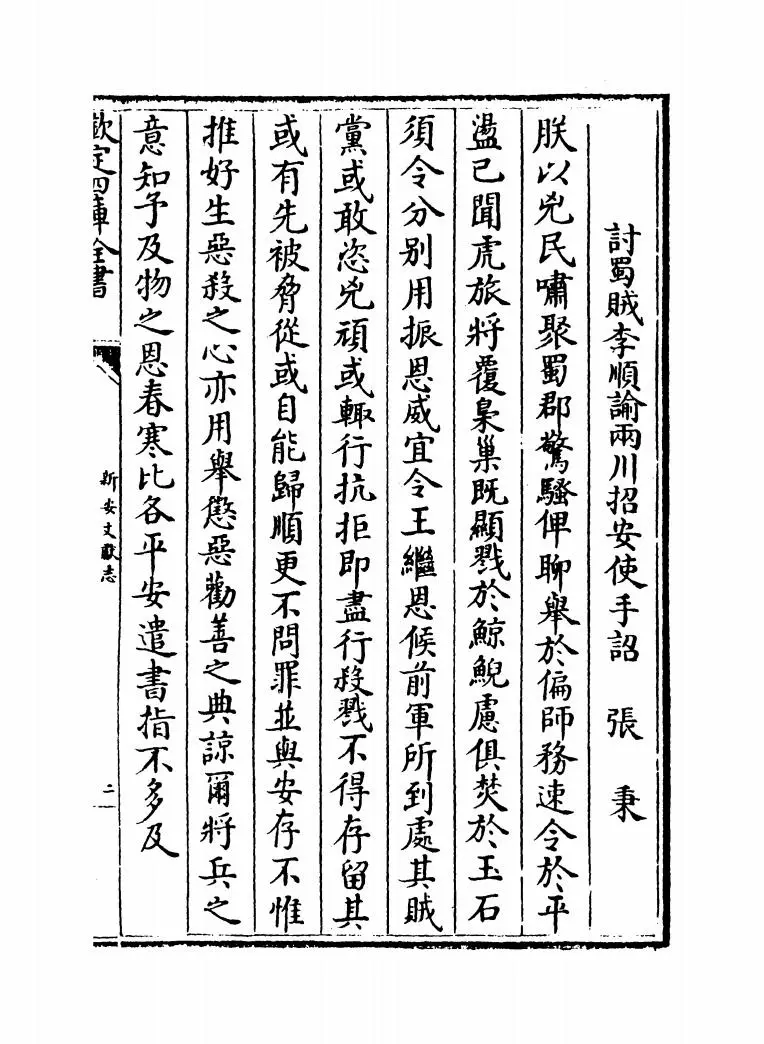 討蜀賊李順諭兩川招安使手詔　張　秉
朕以兇民嘯聚蜀郡驚騷俾聊舉於偏師務速令於平
盪已聞虎旅將覆梟巢既顯戮於鯨鯢慮俱焚於玉石
須令分別用振恩威宜令王繼恩候前軍所到處其賊
黨或敢恣兇頑或輙行抗拒即盡行殺戮不得存留其
或有先被脅從或自能歸順更不問罪並與安存不惟
推好生惡殺之心亦用舉懲惡勸善之典諒爾將兵之
意知予及物之恩春寒比各平安遣書指不多及
欽定四庫全書
新安文獻志
二